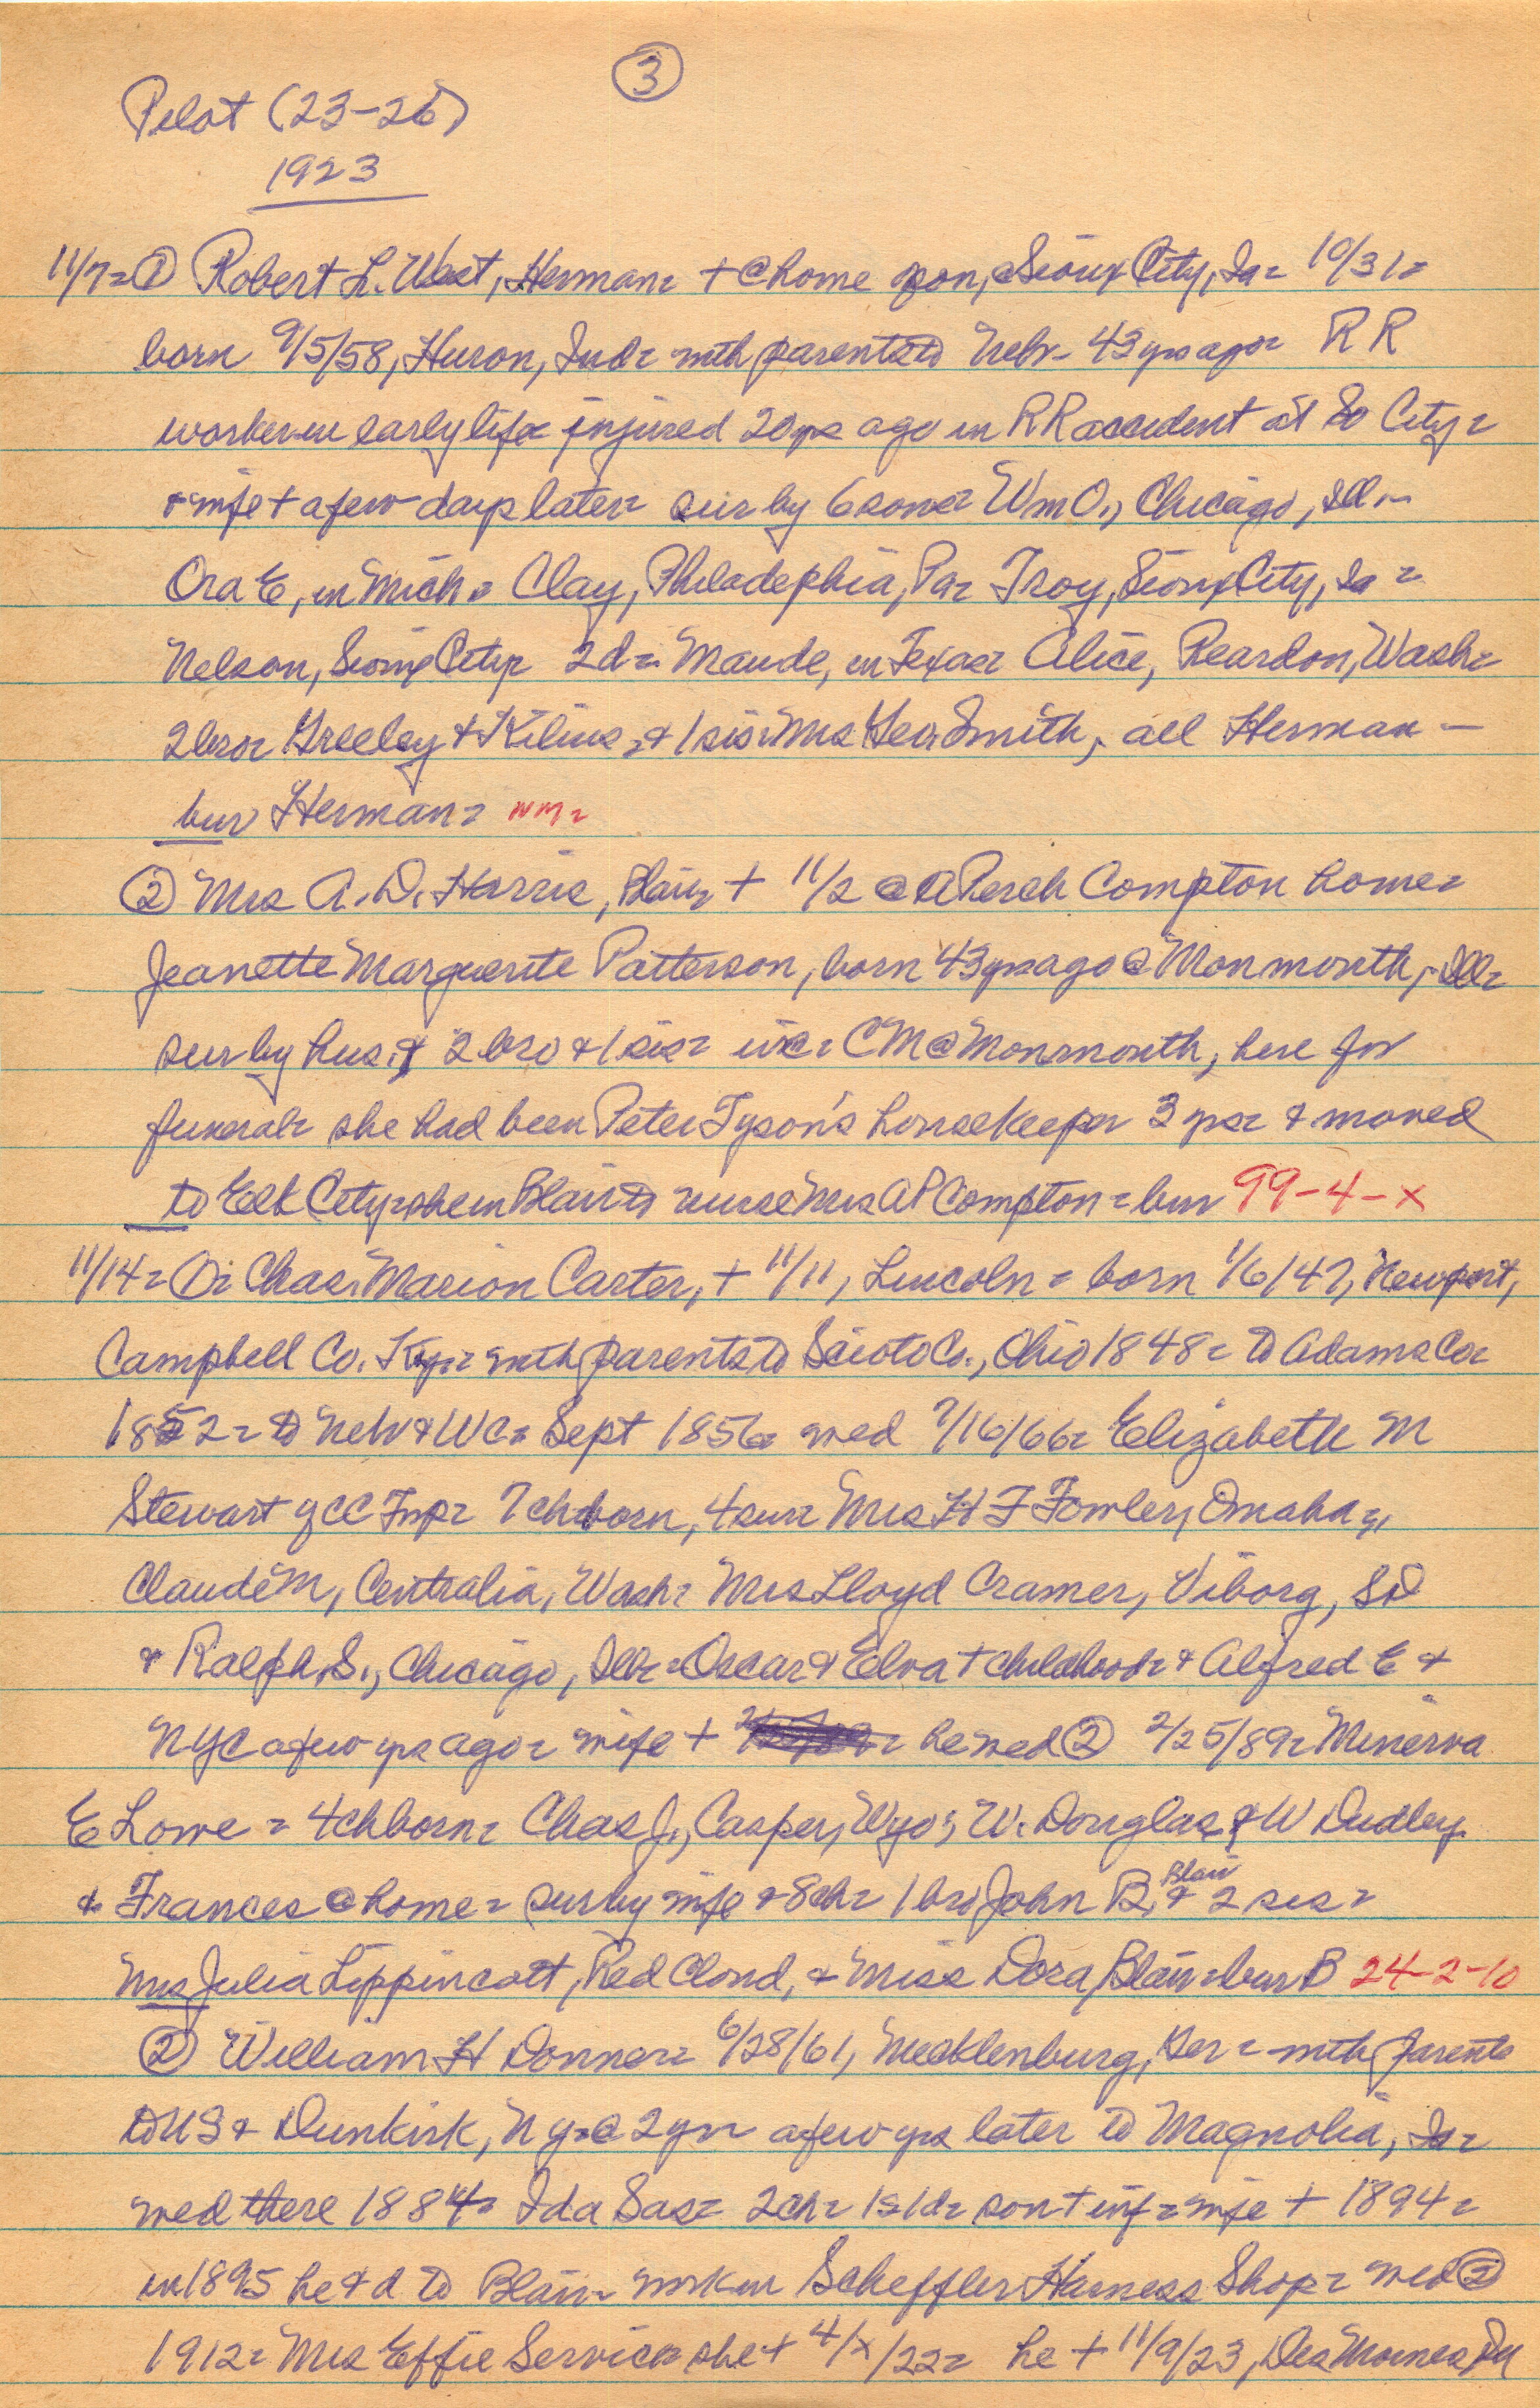 ③
Pilot (23-26)
1923
11/7= ① Robert L. West, Herman= + @ home son, Sioux City, Ia= 10/31=
born 9/5/58, Huron, Ind= with parents to Nebr- 43 yrs ago= RR
worker in early life= injured 20 yrs ago in RR accident at So City=
& wife + a few days later= sur by 6 sons= Wm O., Chicago, Ill-
Ora E, in Mich= Clay, Philadephia, Pa= Troy, Sioux City, Ia=
Nelson, Sioux City= 2d= Maude, in Texas= Alice, Reardon, Wash=
2bro= Greeley & & 1 sis= Mrs Geo Smith, all Herman-
bur Herman= NM=
② Mrs A. D. Harris, Blair= + 11/2 @ A Compton home=
Jeanette Marguerite Patterson, born 43 yrs ago @ Monmouth, Ill=
sur by hus & 2 bro & 1 sis= CM @ Monmouth, here for
funeral= she had been Peter Tyson's housekeeper 3 yrs= & moved
to Elk City= she in Blair to nurse Mrs AP Compton= bur 99-4-x
11/14= ①= Chas. Marion Carter, + 11/11, Lincoln= born 1/6/47, Newport,
Campbell Co. Ky= with parents to Scioto Co., Ohio 1848= to Adams Co=
1852= to Neb & WC= Sept 1856= wed 7/16/66= Elizabeth M
Stewart of CC Twp= 7 ch born, 4 sur= Mrs H F Fowler, Omaha=,
Claude M, Centralia, Wash= Mrs Lloyd Cramer, Viborg, SD
& Ralph S., Chicago, Ill= Oscar & Elva + childhood= & Alfred E +
NYC a few yrs ago= wife + = he wed ② 2/25/89= Minerva
E Lowe= 4 ch born= Chas J., Casper, Wyo; W. Douglas & W Dudley
& Frances @ home= sur by wife & 8 ch= 1 bro John B, Blair & 2 sis=
Mrs Julia Lippincott, Red Cloud, & Miss Dora, Blair= bur B 24-2-10
② William H Donner= 6/28/61, Mecklenburg, Ger= with parents
to US & Dunkirk, Ny= @ 2 yr= a few yrs later to Magnolia, Ia=
wed there 1884= Ida Sas= 2 ch= 1s 1d= son + inf= wife + 1894=
in 1895 he & d to Blair= work in Scheffler Harness Shop= wed ②
1912= Mrs Effie Service= she + 4/x/22= he + 11/9/23, Des Moines